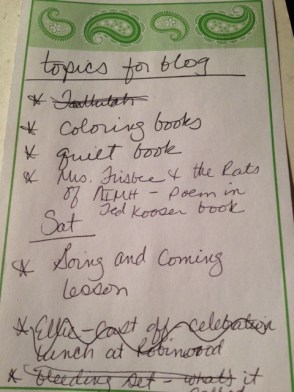 topics for blog
* coloring books
* quilt book
* Mrs. Frisbee & the Rats
of NIMH - Poem in
Ted Kooser book
Sat
* Going and Coming
Lesson
* Effie - cast off - celebration
lunch at Robinwood
* bleeding set - what's it